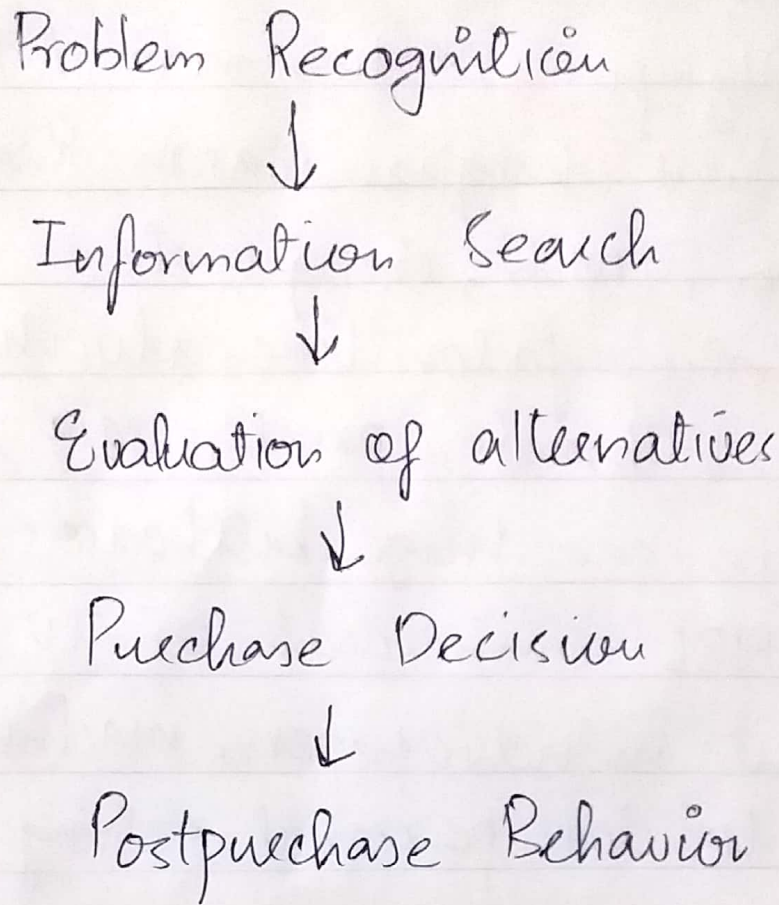 Problem Recognition
↓
Information Search
↓
Evaluation of alternatives
↓
Purchase Decision
↓
Postpurchase Behavior